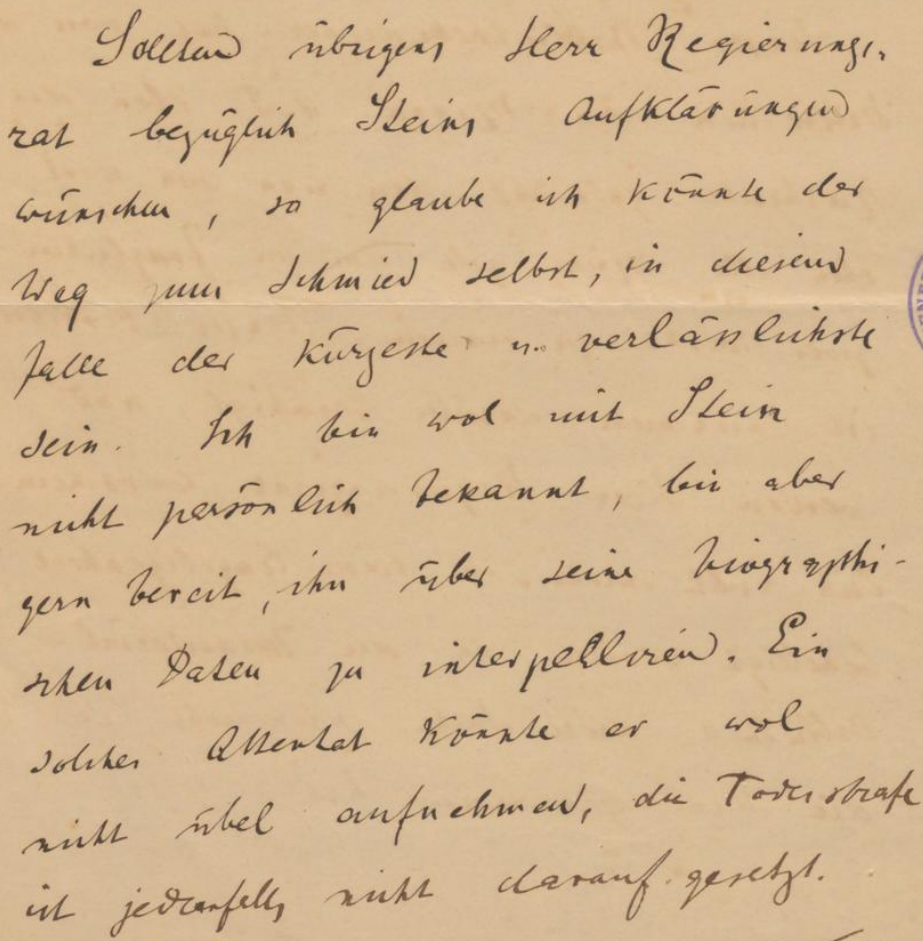 Sollten übrigens Herr Regierungs-
rat bezüglich Steins Aufklärungen
wünschen, so glaube ich könnte der
Weg zum Schmied selbst, in diesem
Falle der kürzeste u. verlässlichste
sein. Ich bin wol mit Stein
nicht persönlich bekannt, bin aber
gern bereit, ihn über seine biographi-
schen Daten zu interpelliren. Ein
solches Attentat könnte er wol
nicht übel aufnehmen, die Todesstrafe
ist jedenfalls nicht darauf gesetzt.